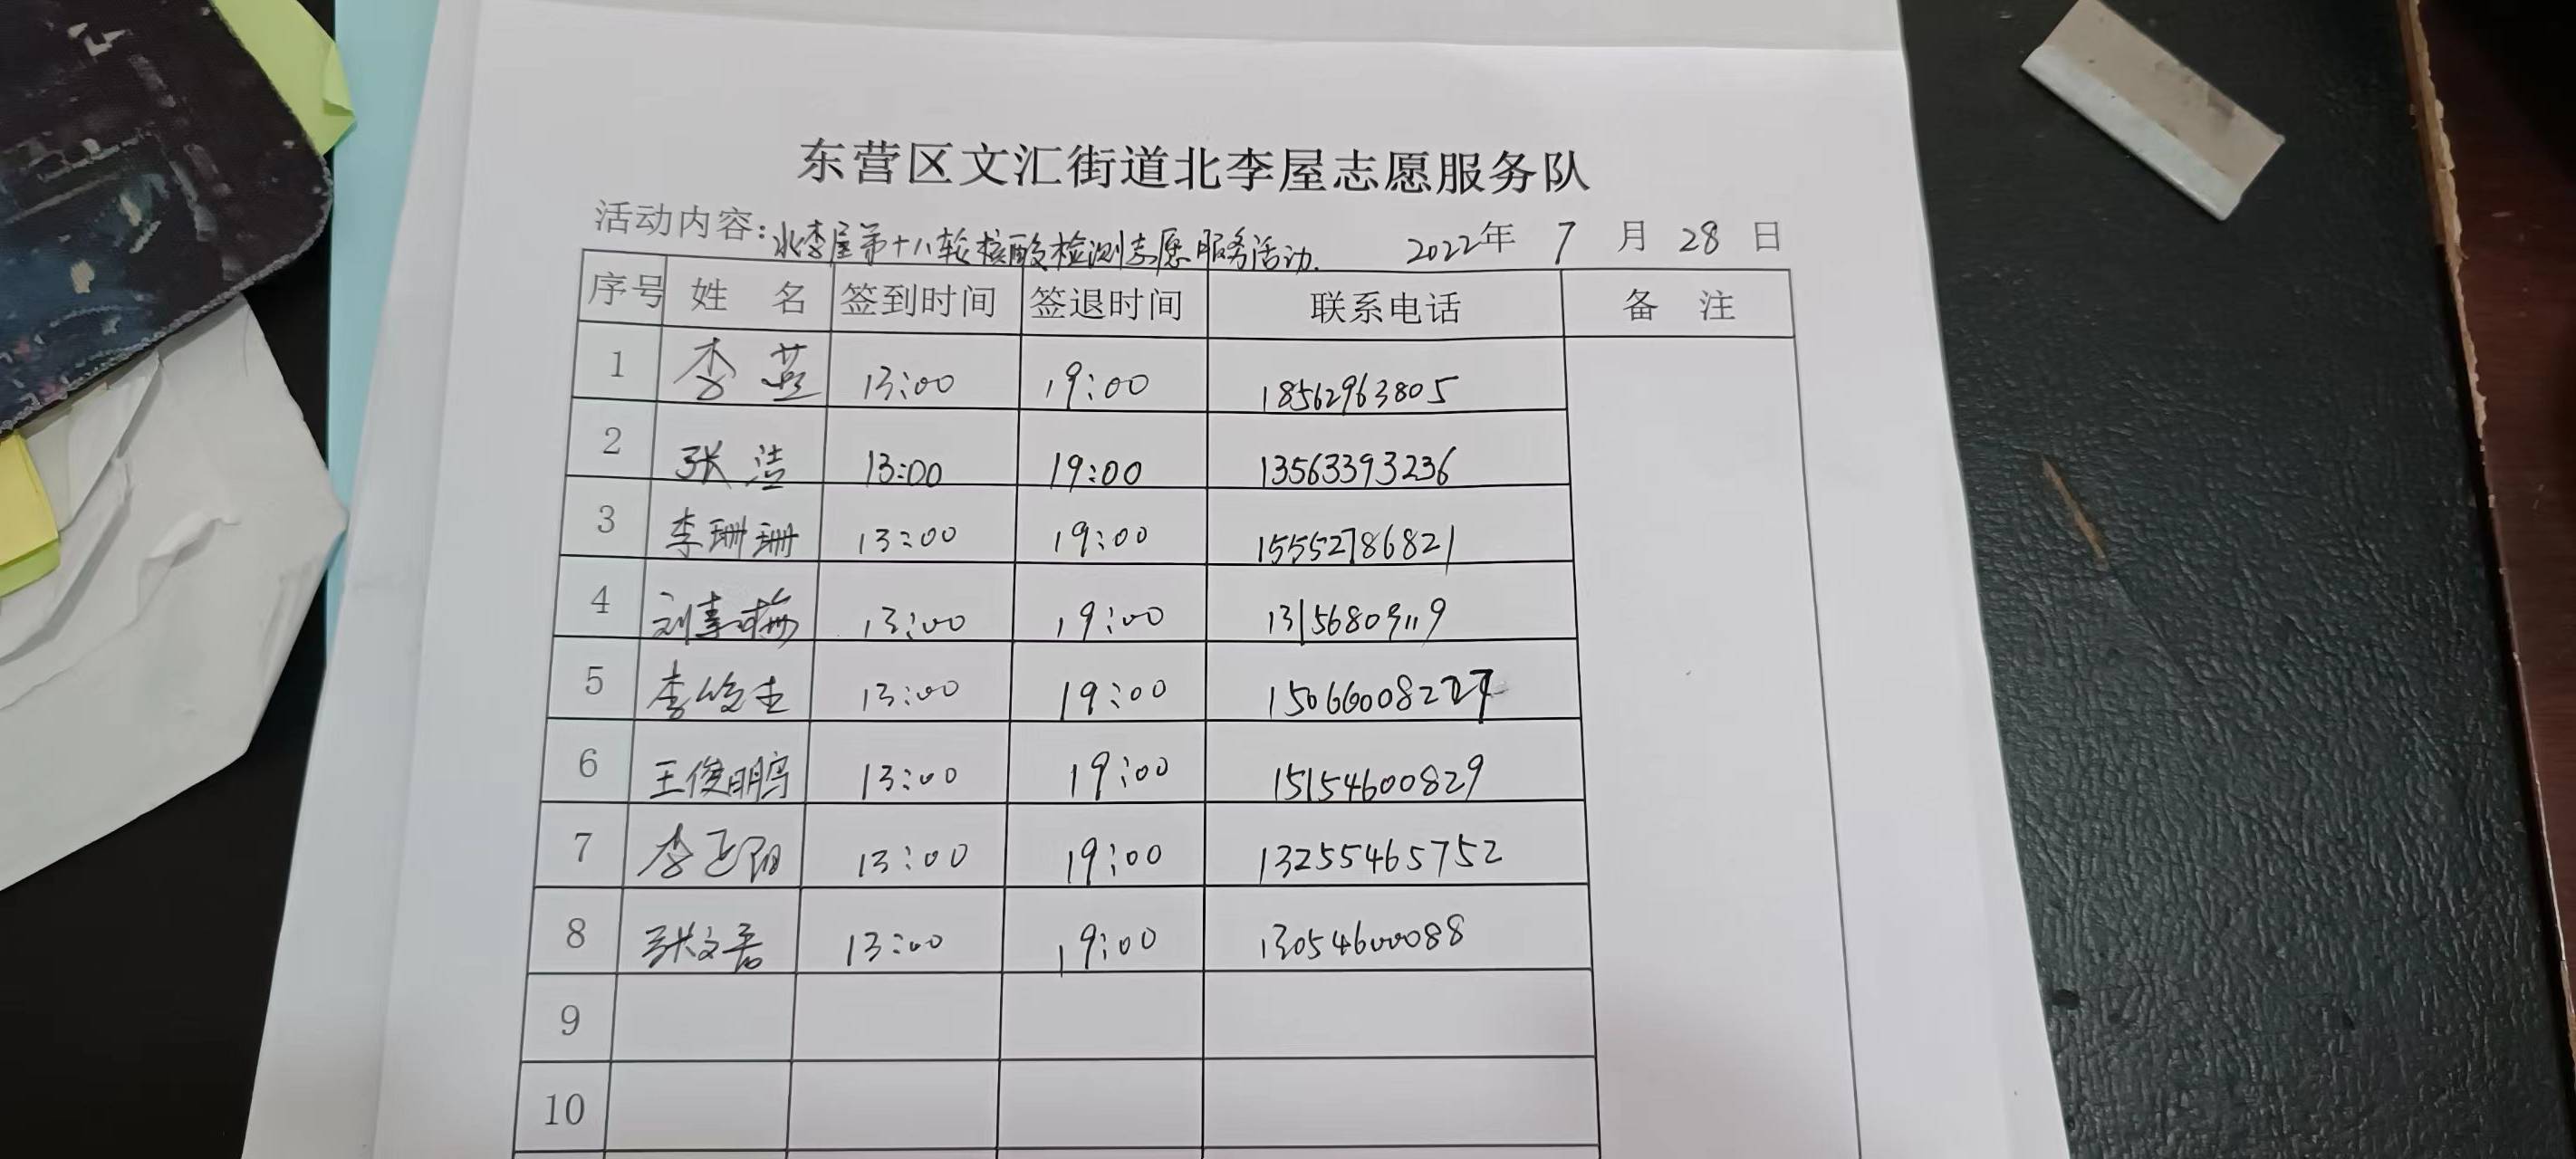 东营区文汇街道北李屋志愿服务队
活动内容:北李屋第十八轮核酸检测志愿服务活动. 2022年 7 月 28 日
序号 姓 名 签到时间 签退时间 联系电话 备 注
1 李 燕 13:00 19:00 18562963805
2 张 洁 13:00 19:00 13563393236
3 李珊珊 13:00 19:00 15552786821
4 刘春梅 13:00 19:00 13156809119
5 13:00 19:00
6 王俊鹏 13:00 19:00 15154600829
7 李正阳 13:00 19:00 13255465752
8 13:00 19:00 13054600088
9
10